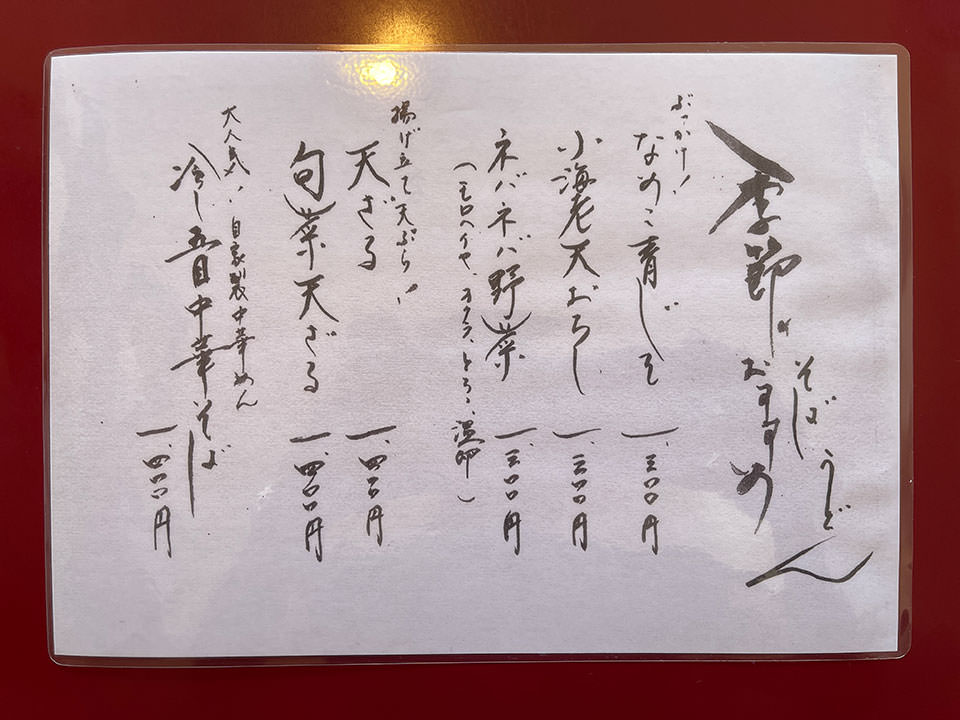 季節のおすすめ
そば
うどん
ぶっかけ!
なめこ青じそ 一、三〇〇円
小海老天おろし 一、三〇〇円
ネバネバ野菜 一、三〇〇円
(モロヘイヤ、オクラ、とろろ、温卵)
揚げ立て天ぷら!
天ざる 一、四〇〇円
旬菜天ざる 一、四〇〇円
大人気!自家製中華めん
冷し五目中華そば 一、四〇〇円